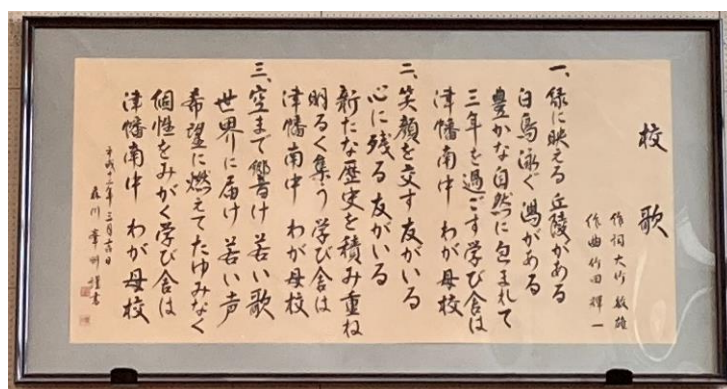 校歌
作詞 大竹 敏雄
作曲 竹田 輝一
一、緑に映える 丘陵がある
白鳥泳ぐ 潟がある
豊かな自然に 包まれて
三年を過ごす 学び舎は
津幡南中 わが母校
二、笑顔を交す 友がいる
心に残る 友がいる
新たな歴史を 積み重ね
明るく集う 学び舎は
津幡南中 わが母校
三、空まで響け 若い歌
世界に届け 若い声
希望に燃えて たゆみなく
個性をみがく 学び舎は
津幡南中 わが母校